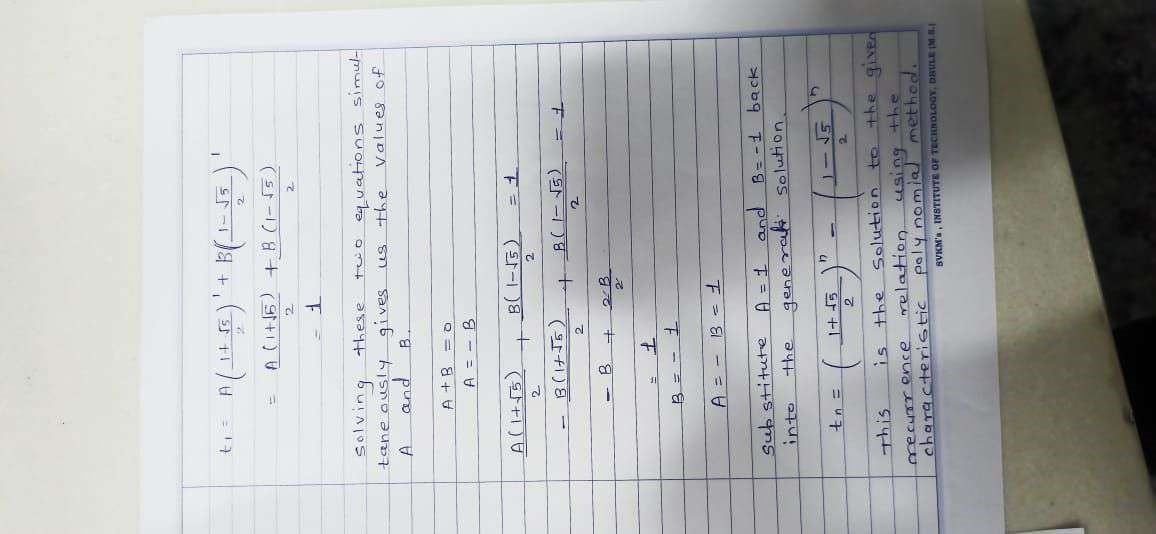 t₁ = A((1+√5)/2)' + B((1-√5)/2)'
= A(1+√5)/2 + B(1-√5)/2
= 1
solving these two equations simul-
taneously gives us the values of
A and B.
A+B = 0
A = -B
A(1+√5)/2 + B(1-√5)/2 = 1
- B(1+√5)/2 + B(1-√5)/2 = 1
- B + 2B/2
= 1
B = - 1
A = - B = 1
Substitute A = 1 and B = -1 back
into the general solution.
tn = ((1+√5)/2)ⁿ - ((1-√5)/2)ⁿ
This is the solution to the given
recurrence relation using the
characteristic polynomial method.
SVKM's, INSTITUTE OF TECHNOLOGY, DHULE (M.S.)